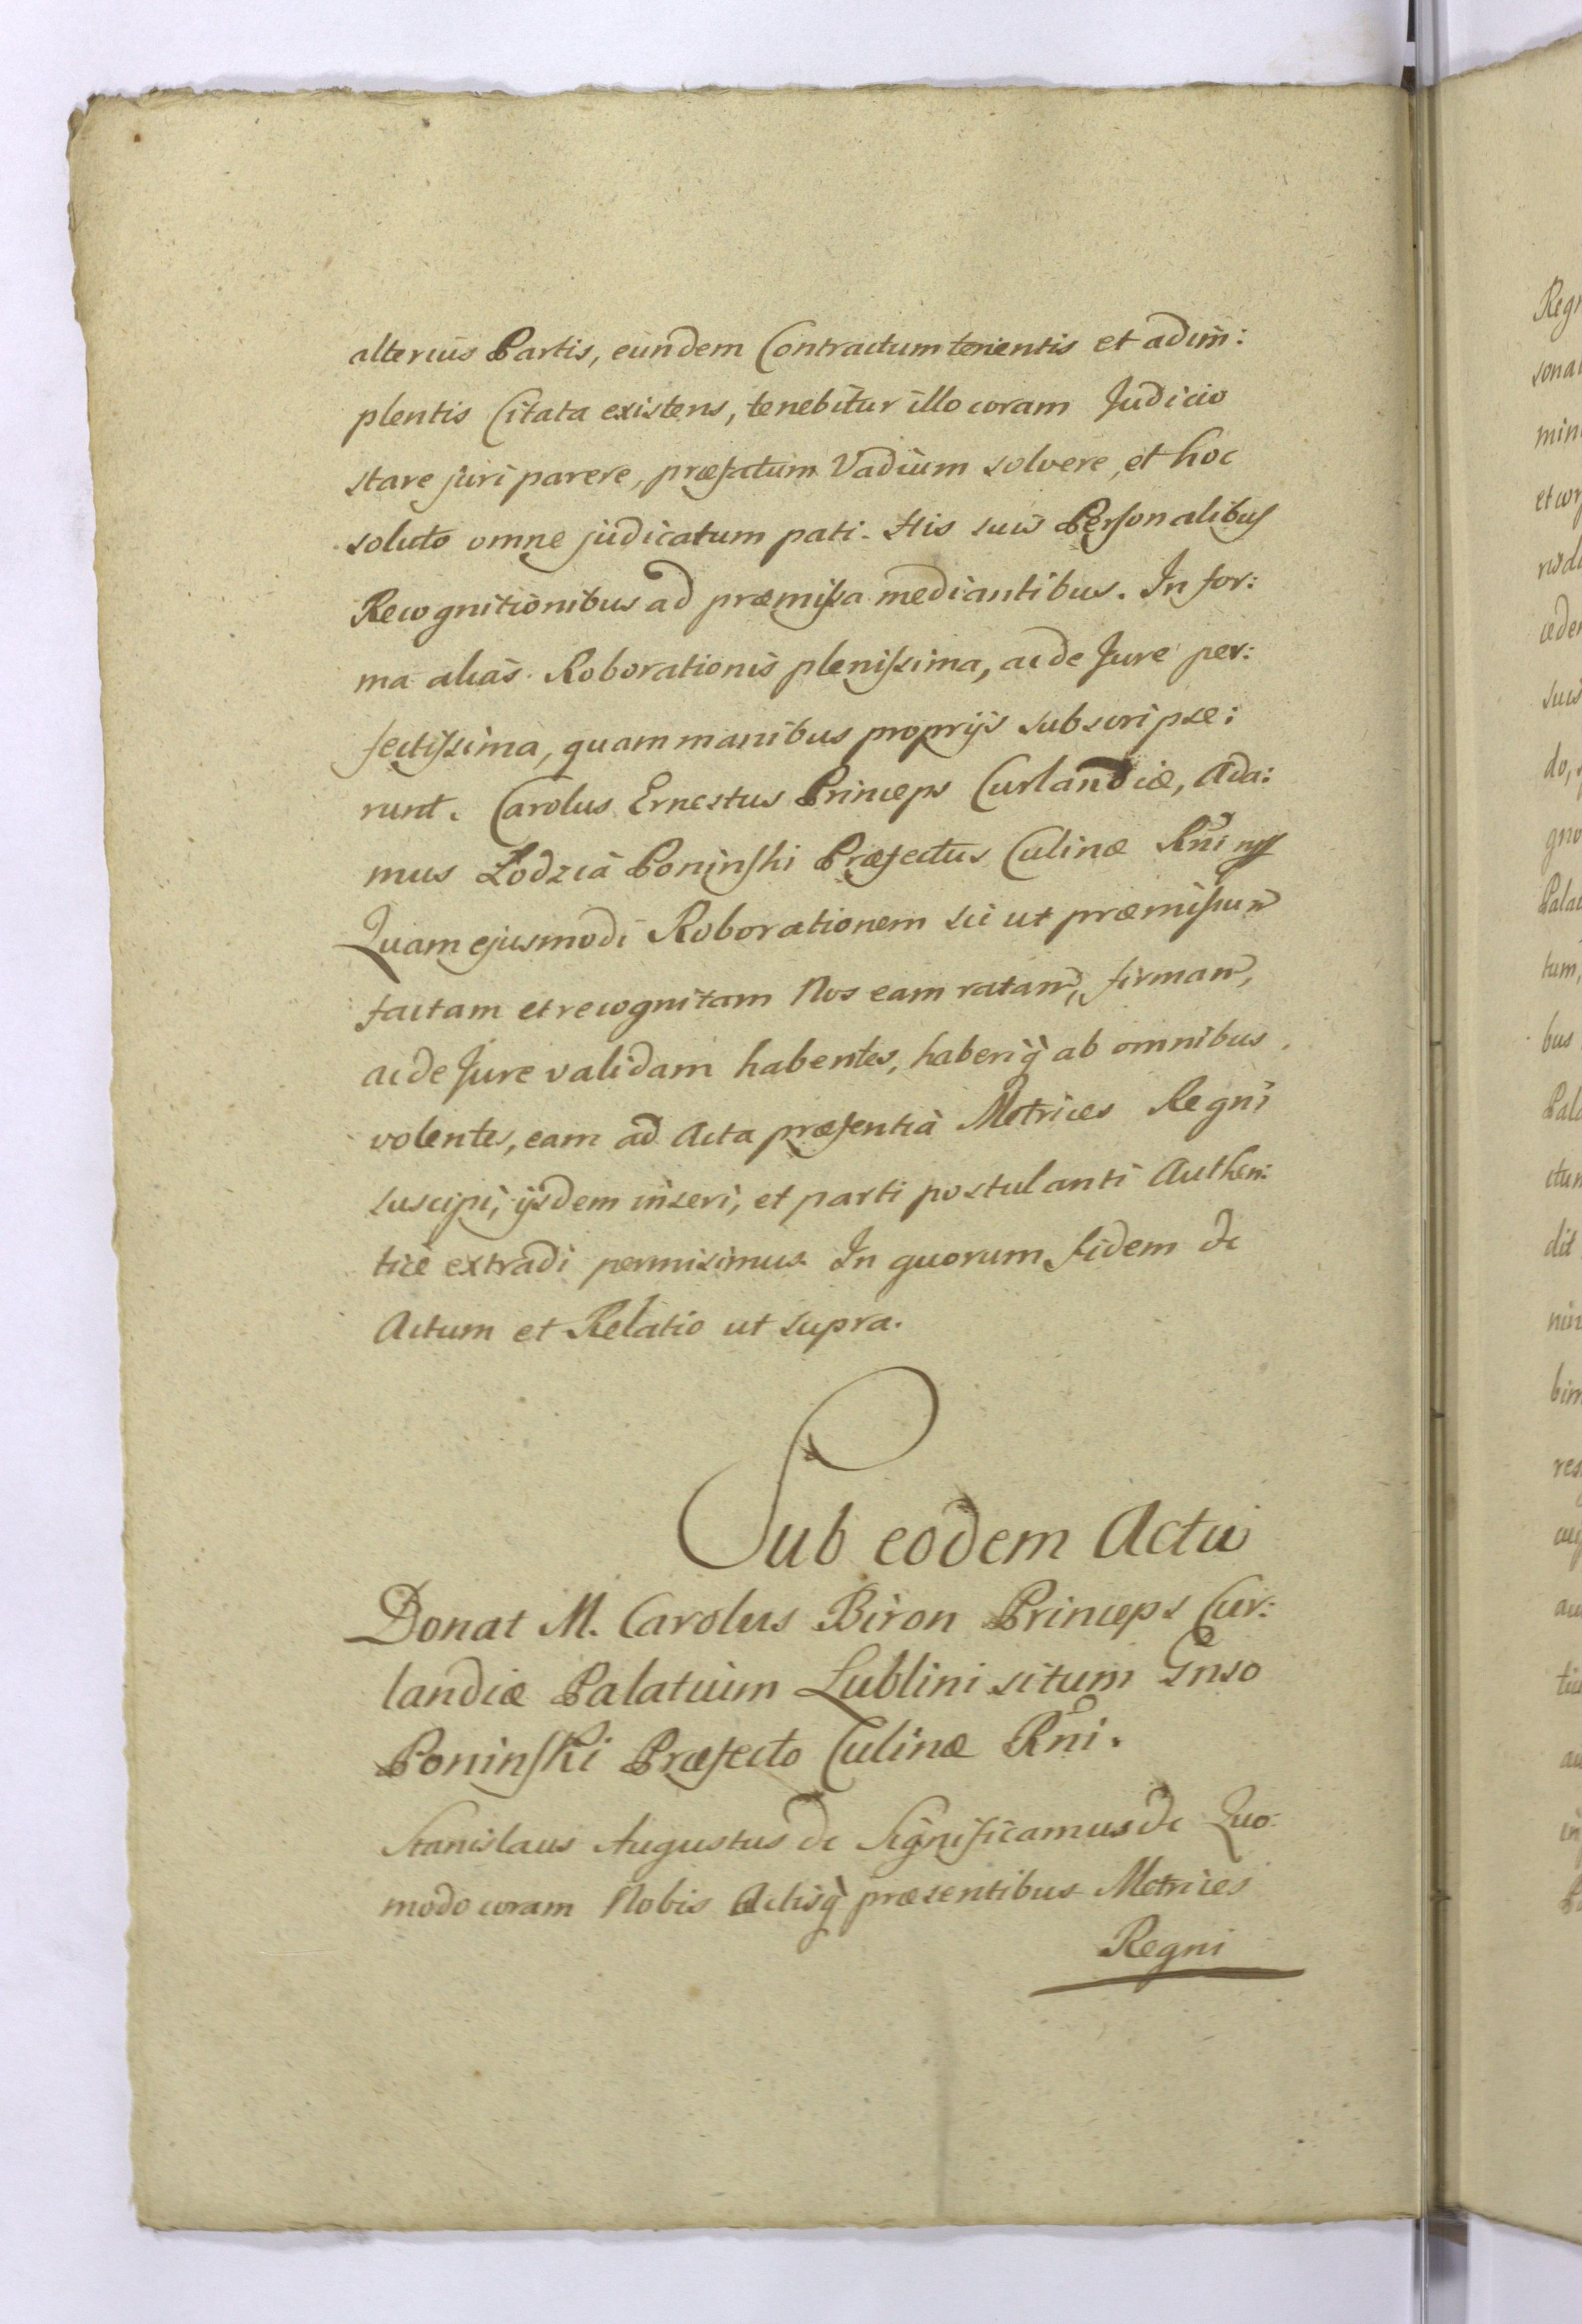 alterius Partis, eundem Contractum tenentis et adim:
plentis Citata existens, tenebitur illo coram Judicio
stare juri parere, præfatum Vadium solvere, et hoc
soluto omne judicatum pati. His suis Personalibus
Recognitionibus ad præmissa mediantibus. In for:
ma alias Roborationis plenissima, ac de Jure per:
fectissima, quam manibus proprijs subscripse:
runt. Carolus Ernestus Princeps Curlandiæ, Ada:
mus Łodzia Poninski Præfectus Culinæ Rñi
Quam ejusmodi Roborationem sic ut præmissum
factam et recognitam Nos eam ratam, firmam,
ac de Jure validam habentes, haberiq̀ ab omnibus
volentes, eam ad Acta præsentia Metrices Regni
suscipi, ijsdem inseri, et parti postulanti Authen:
ticè extradi permisimus. In quorum fidem &c
Actum et Relatio ut supra.
Sub eodem Actu
Donat M. Carolus Biron Princeps Cur:
landiæ Palatium Lublini situm Gnso
Poninski Præfecto Culinæ Rñi.
Stanislaus Augustus &c Significamus &c Quo
modo coram Nobis Actisq̀ præsentibus Metrices
Regni